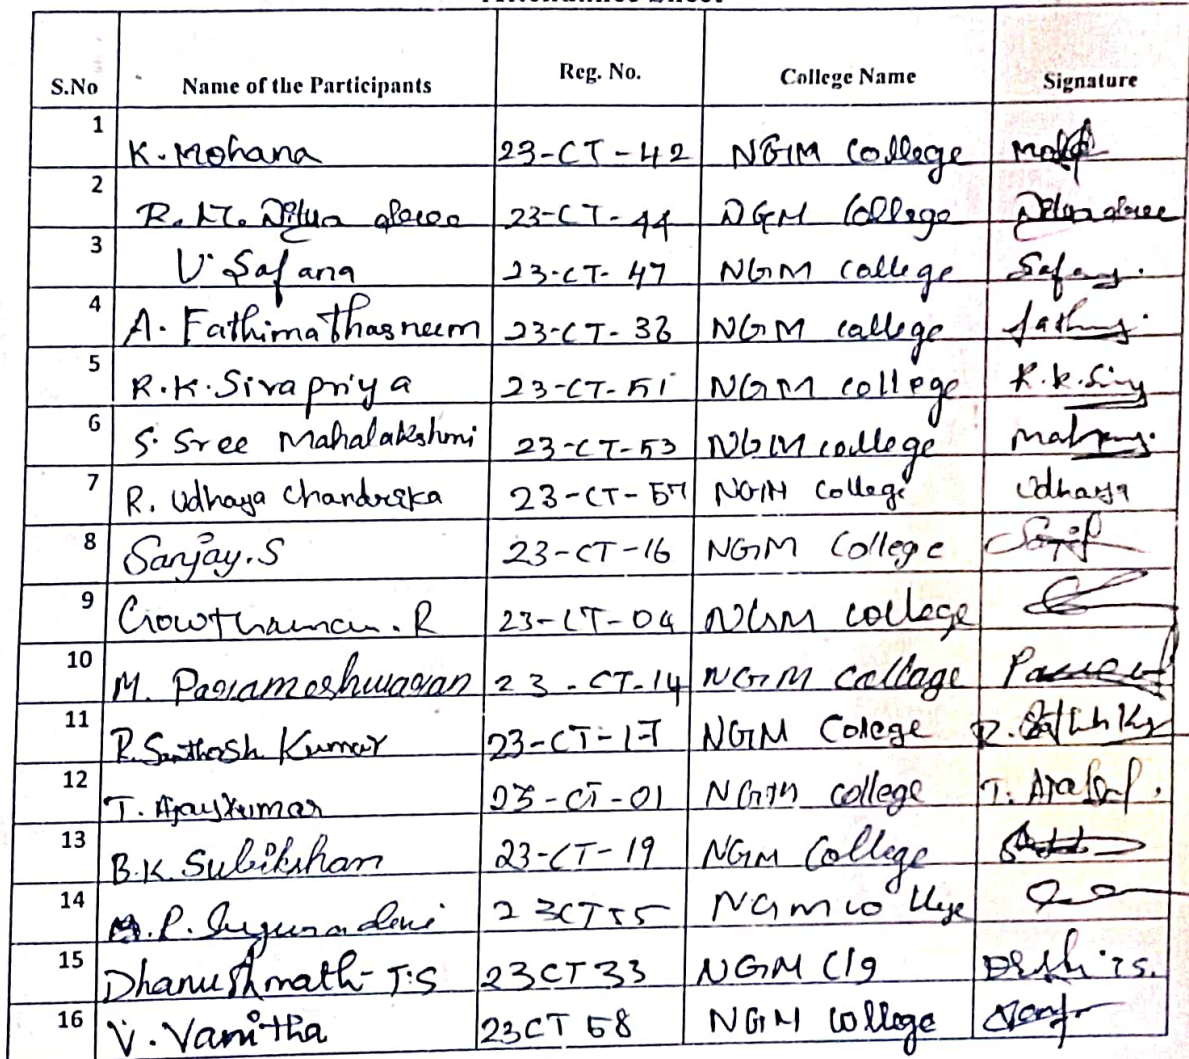 S.No Name of the Participants Reg. No. College Name Signature
1 K. Mohana 23-CT-42 NGM College
2 R. M. 23-CT-44 NGM College
3 V. Safana 23-CT-47 NGM college Safana
4 A. Fathima Thasneem 23-CT-36 NGM college
5 R.K. Sivapriya 23-CT-51 NGM college R.K.
6 S. Sree Mahalakshmi 23-CT-53 NGM college
7 R. Udhaya Chandrika 23-CT-57 NGM College Udhaya
8 Sanjay.S 23-CT-16 NGM College
9 Gowthaman. R 23-CT-04 NGM college
10 M. Parameshwaran 23-CT-14 NGM Collage
11 R. Santhosh Kumar 23-CT-17 NGM Colege
12 T. Ajaykumar 23-CT-01 NGM college T.
13 B.K. Subikshan 23-CT-19 NGM College
14 P. Sugunadevi 23CT55 NGM College
15 Dhanushnath T.S 23CT33 NGM Clg
16 V. Vanitha 23CT58 NGM College